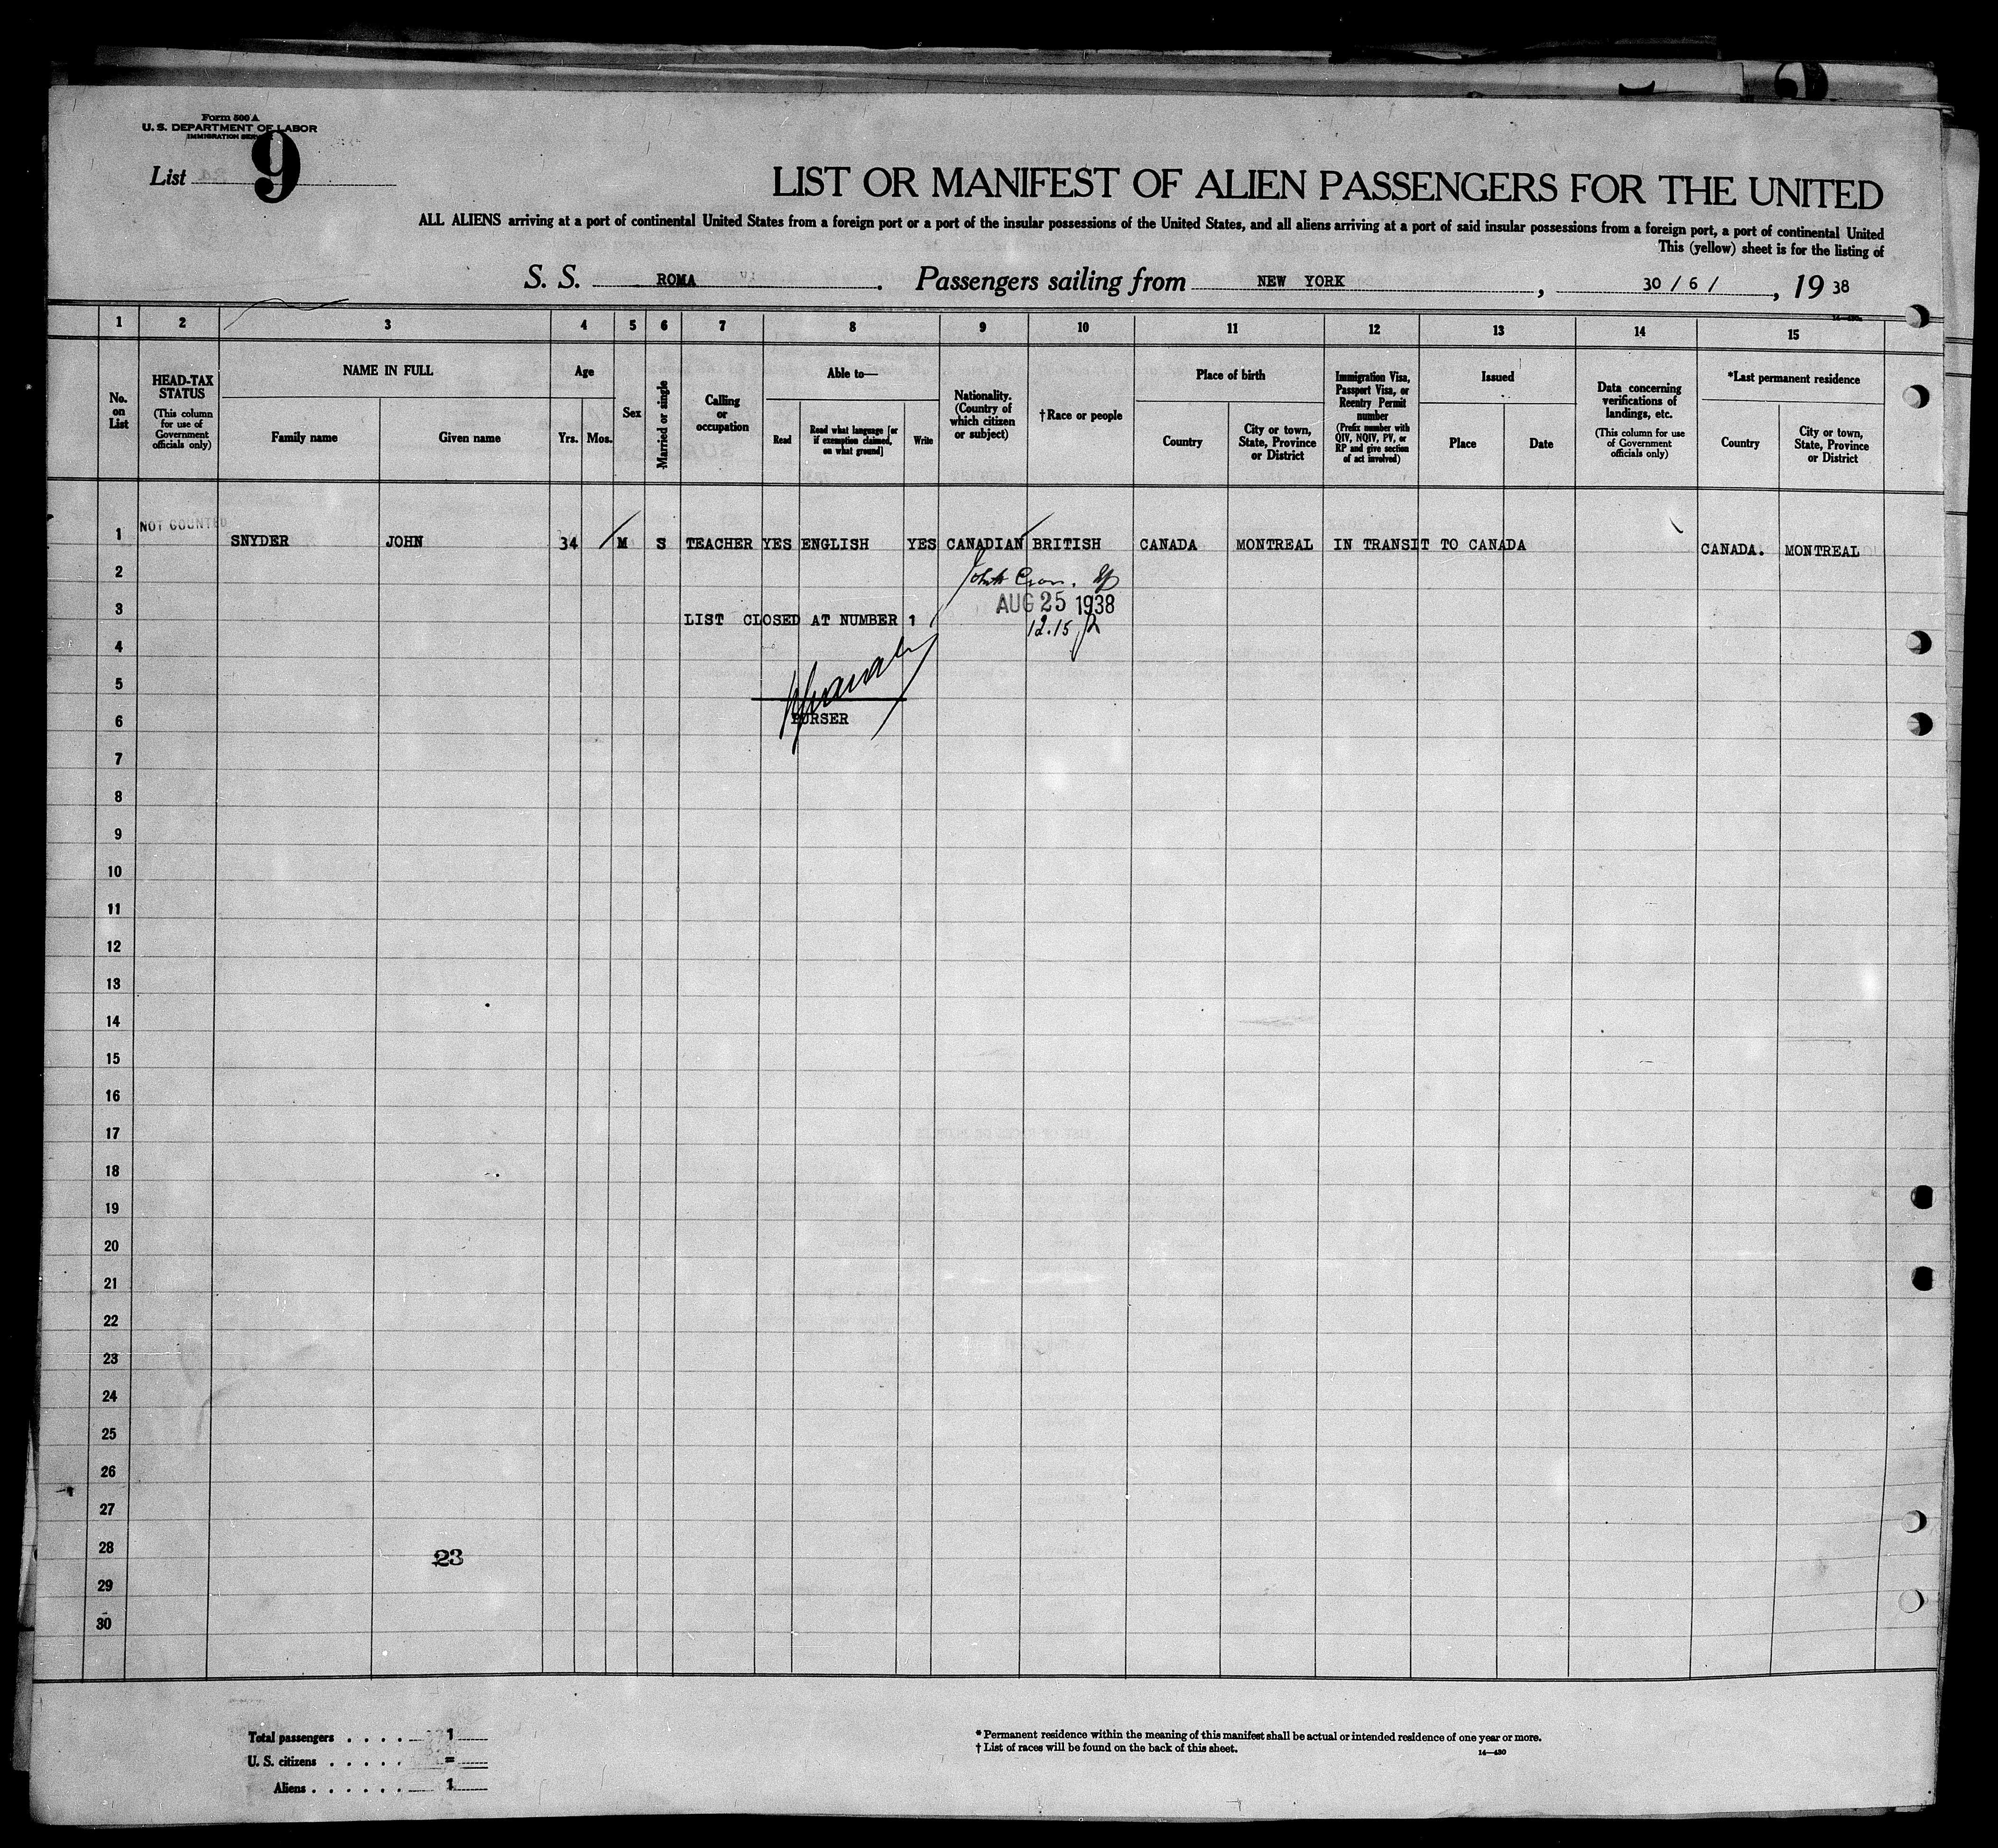 Form 500 A
U. S. DEPARTMENT OF LABOR
IMMIGRATION SERVICE
List 9
LIST OR MANIFEST OF ALIEN PASSENGERS FOR THE UNITED
ALL ALIENS arriving at a port of continental United States from a foreign port or a port of the insular possessions of the United States, and all aliens arriving at a port of said insular possessions from a foreign port, a port of continental United
This (yellow) sheet is for the listing of
S. S. ROMA. Passengers sailing from NEW YORK, 30 / 6 /, 19 38
1 2 3 4 5 6 7 8 9 10 11 12 13 14 15
No. on List
HEAD-TAX STATUS
(This column for use of Government officials only)
NAME IN FULL
Family name
Given name
Age
Yrs. Mos.
Sex
Married or single
Calling or occupation
Able to—
Read
Read what language [or if exemption claimed, on what ground]
Write
Nationality. (Country of which citizen or subject)
†Race or people
Place of birth
Country
City or town, State, Province or District
Immigration Visa, Passport Visa, or Reentry Permit number
(Prefix number with QIV, NQIV, PV, or RP and give section of act involved)
Issued
Place
Date
Data concerning verifications of landings, etc.
(This column for use of Government officials only)
*Last permanent residence
Country
City or town, State, Province or District
1 NOT COUNTED SNYDER JOHN 34 M S TEACHER YES ENGLISH YES CANADIAN BRITISH CANADA MONTREAL IN TRANSIT TO CANADA CANADA. MONTREAL
2
AUG 25 1938
3 LIST CLOSED AT NUMBER 1
12.15
4
5
6 PURSER
7
8
9
10
11
12
13
14
15
16
17
18
19
20
21
22
23
24
25
26
27
28 23
29
30
Total passengers . . . . 1
U. S. citizens . . . . . =
Aliens . . . . . . 1
* Permanent residence within the meaning of this manifest shall be actual or intended residence of one year or more.
† List of races will be found on the back of this sheet.
14—430